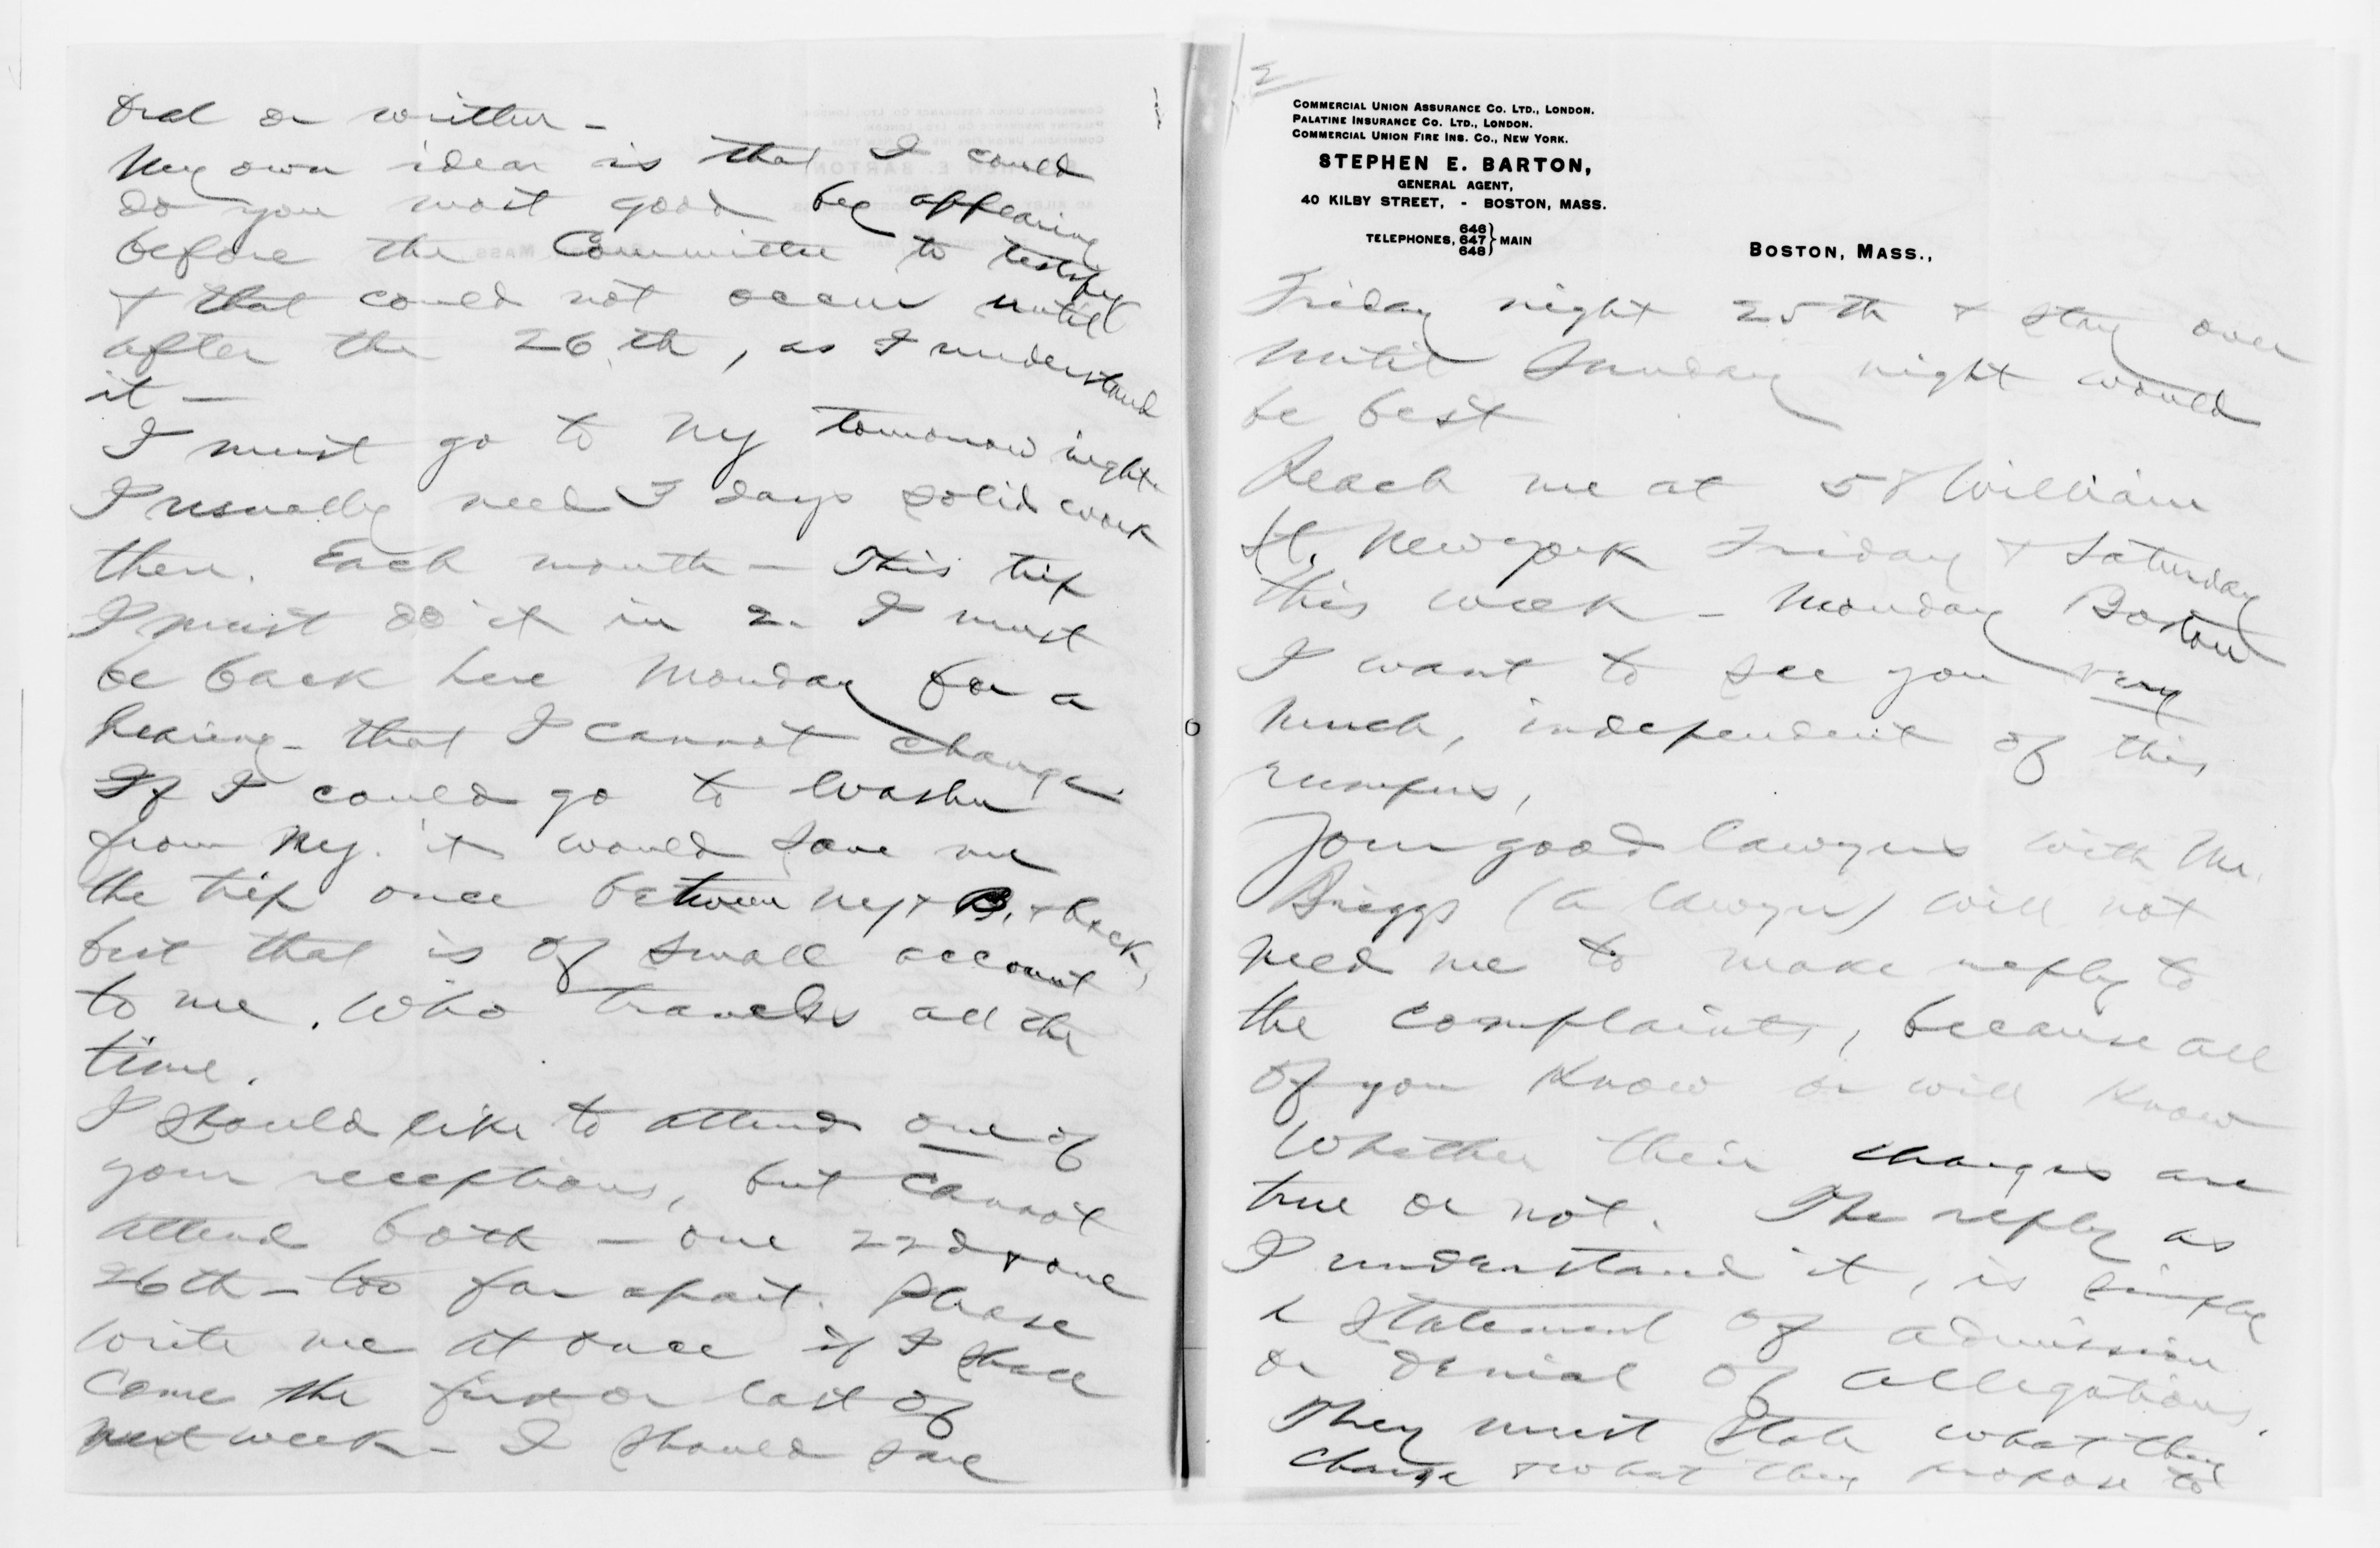 oral or written -
My own idea is that I could
do you most good by appearing
before the Committee to testify
& that could not occur until
after the 26th, as I understand
it -
I must go to NY tomorrow night.
I usually need 3 days solid work
there. Each month - This trip
I must do it in 2. I must
be back here Monday for a
hearing - that I cannot change
If I could go to Washn
from NY. it would save me
the trip once between NY & B. & back,
but that is of small account
to me. who travels all the
time.
I should like to attend one of
your receptions, but cannot
attend both - one 22d & one
26th - too far apart. Please
write me at once if I shall
come the first or last of
next week - I should say
2
COMMERCIAL UNION ASSURANCE CO. LTD., LONDON.
PALATINE INSURANCE CO. LTD., LONDON.
COMMERCIAL UNION FIRE INS. CO., NEW YORK.
STEPHEN E. BARTON,
GENERAL AGENT,
40 KILBY STREET, - BOSTON, MASS.
TELEPHONES, 646 647 648 } MAIN
BOSTON, MASS.,
Friday night 25th & stay over
until Sunday night would
be best
Reach me at 58 William
St. New York Friday & Saturday
this week - Monday Boston
I want to see you very
much, independent of this
rumpus,
Your good lawyers with Mr.
Briggs (a lawyer) will not
need me to make reply to
the complaints, because all
of you know or will know
whether their charges are
true or not. The reply as
I understand it, is simply
a statement of admission
or denial of allegations.
They must state what they
charge & what they propose to